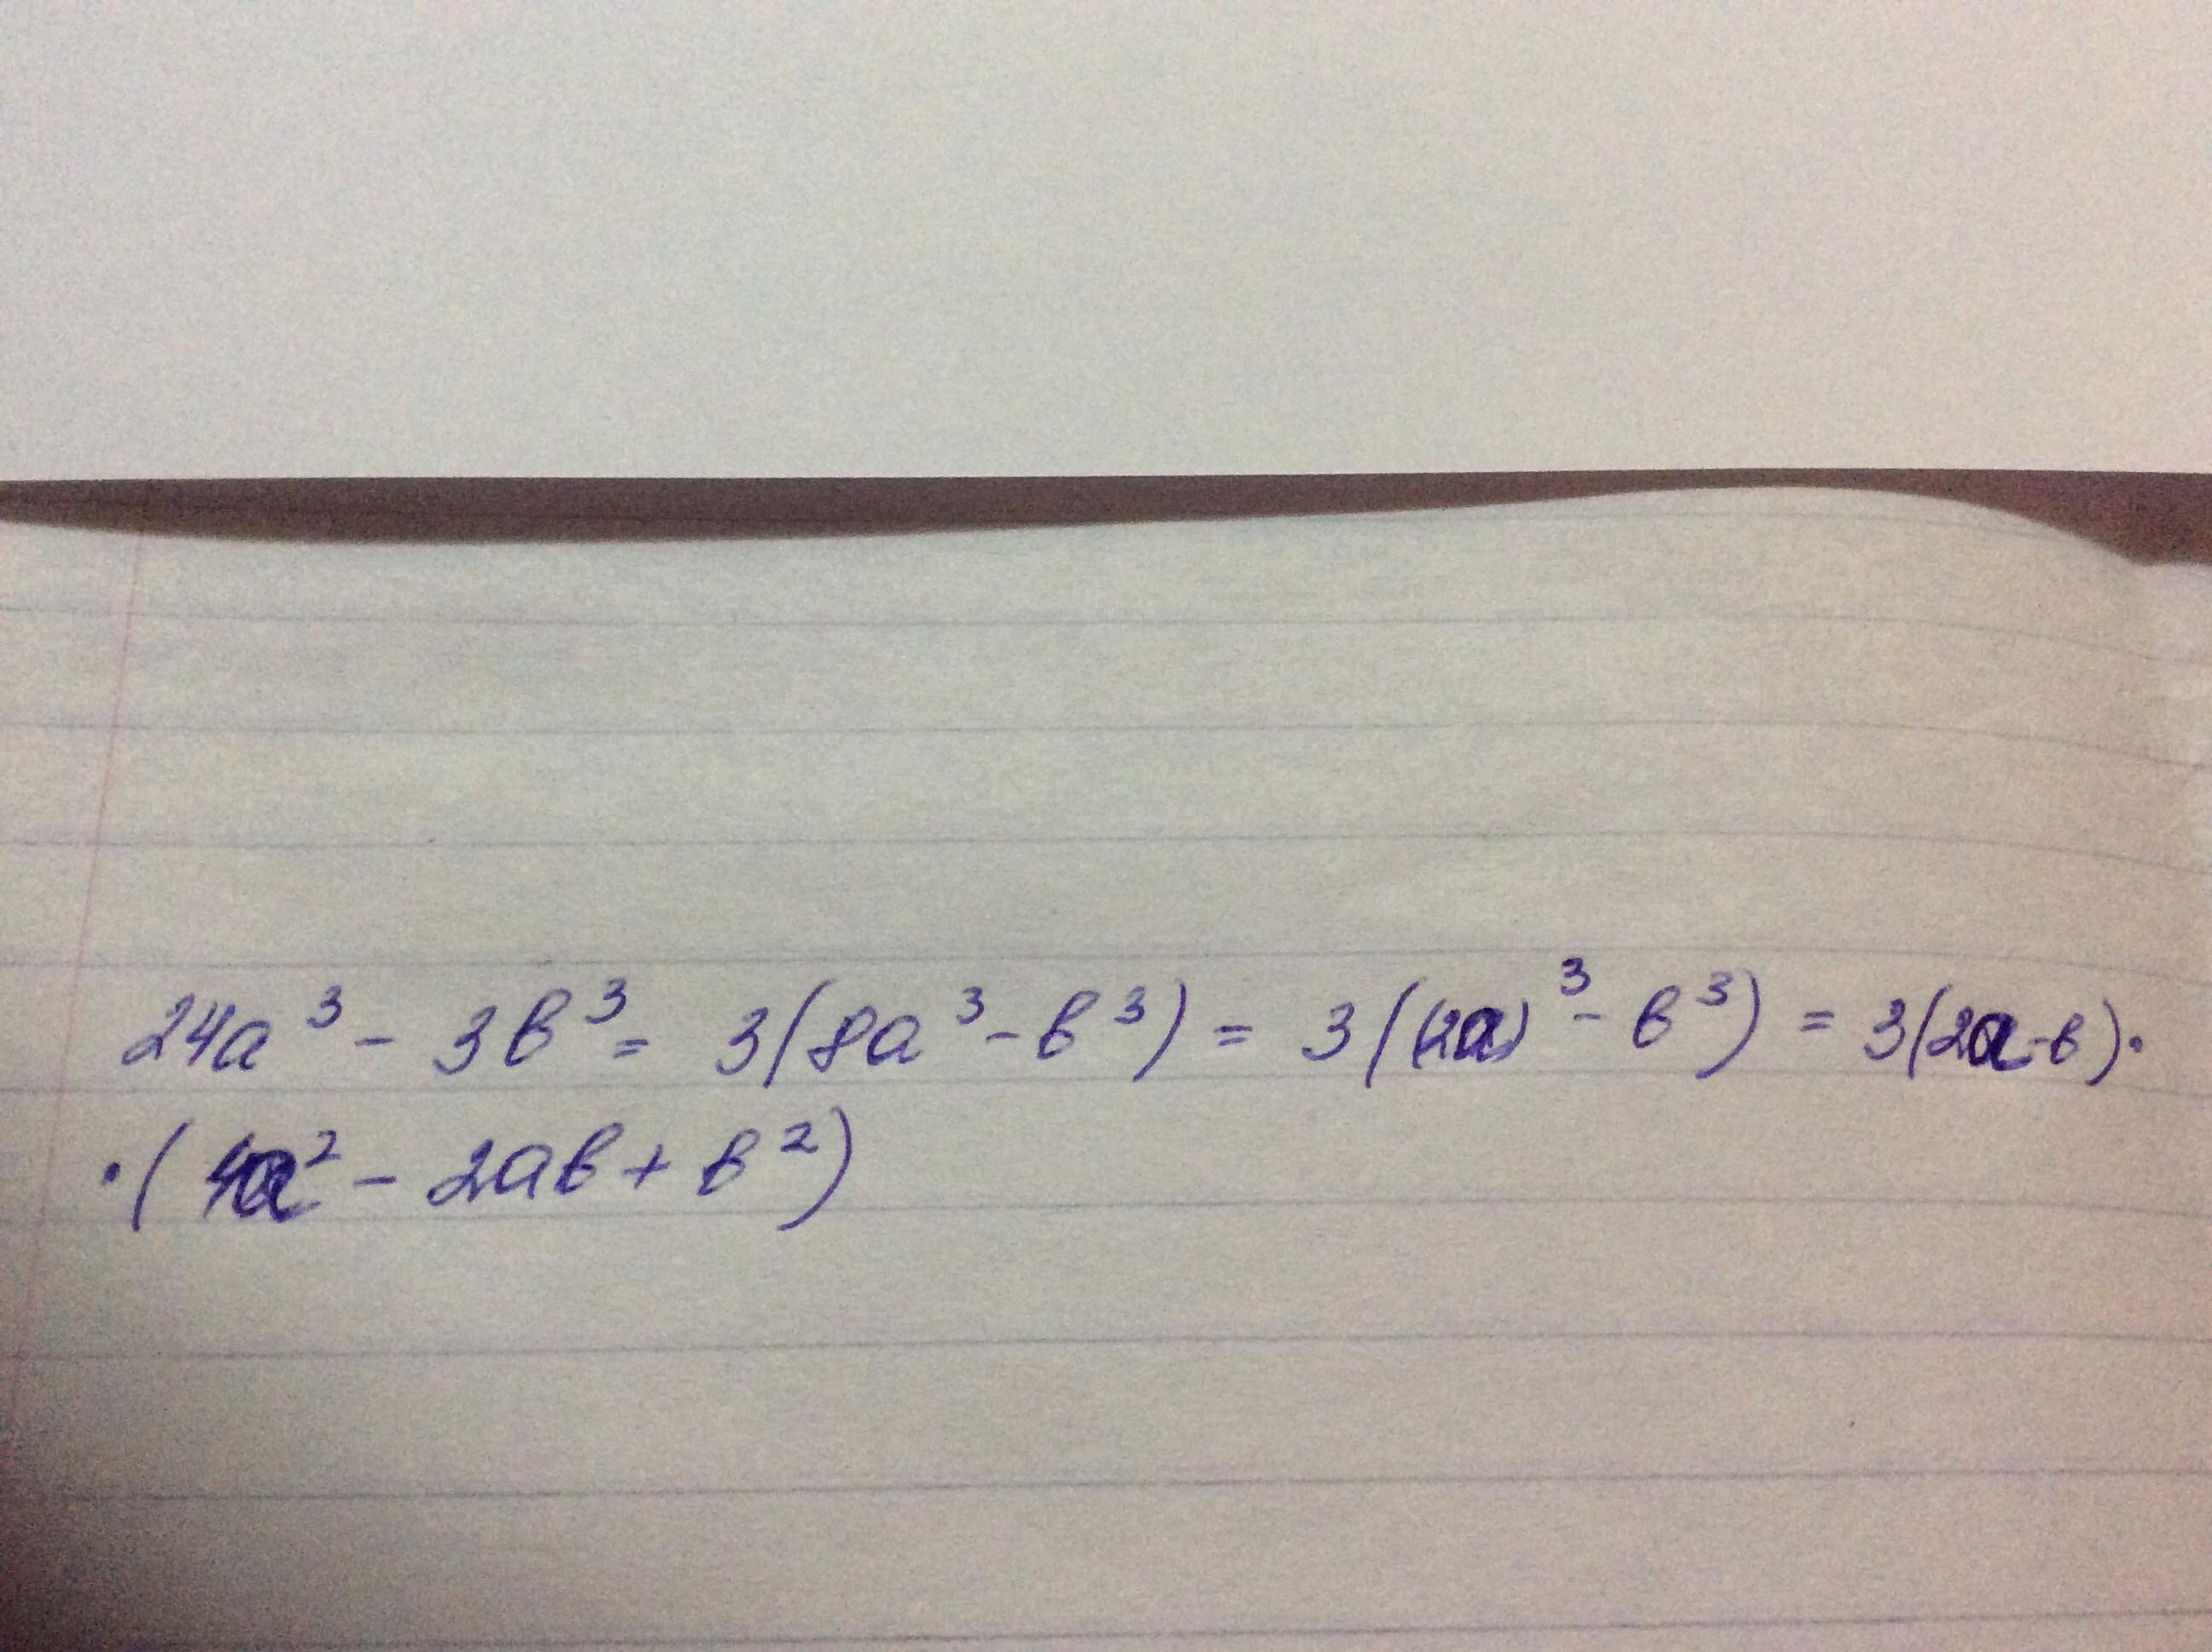 24a³ - 3b³ = 3(8a³ - b³) = 3((2a)³ - b³) = 3(2a-b)·
·(4a² - 2ab + b²)